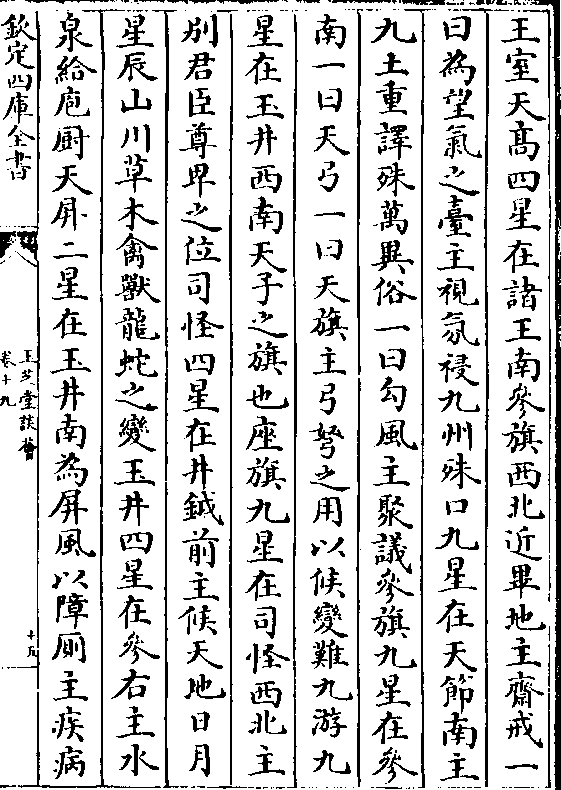 王室天髙四星在諸王南參旗西北近畢地主齋戒一
曰為望氣之臺主視氛祲九州殊口九星在天節南主
九土重譯殊萬異俗一曰勾風主聚議參旗九星在參
南一曰天弓一曰天旗主弓弩之用以候變難九游九
星在玉井西南天子之旗也座旗九星在司怪西北主
別君臣尊卑之位司怪四星在井鉞前主候天地日月
星辰山川草木禽獸龍蛇之變玉井四星在參右主水
泉給庖厨天屏二星在玉井南為屏風以障厠主疾病
欽定四庫全書
玉芝堂談薈
卷十九
十五